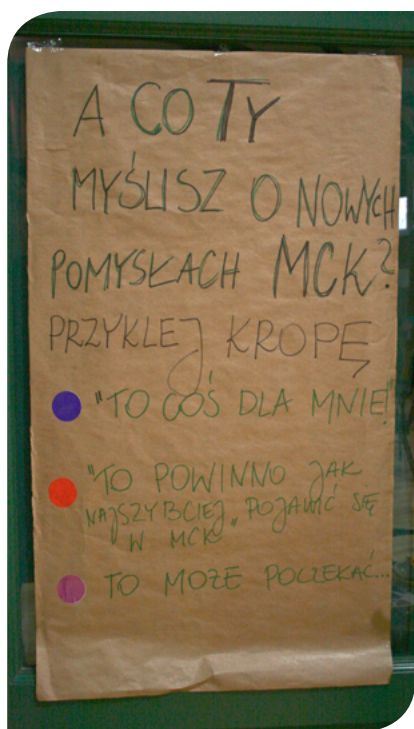 A CO TY
MYŚLISZ O NOWYCH
POMYSŁACH MCK?
PRZYKLEJ KROPĘ
"TO COŚ DLA MNIE!"
"TO POWINNO JAK
NAJSZYBCIEJ POJAWIĆ SIĘ
W MCK"
TO MOŻE POCZEKAĆ...